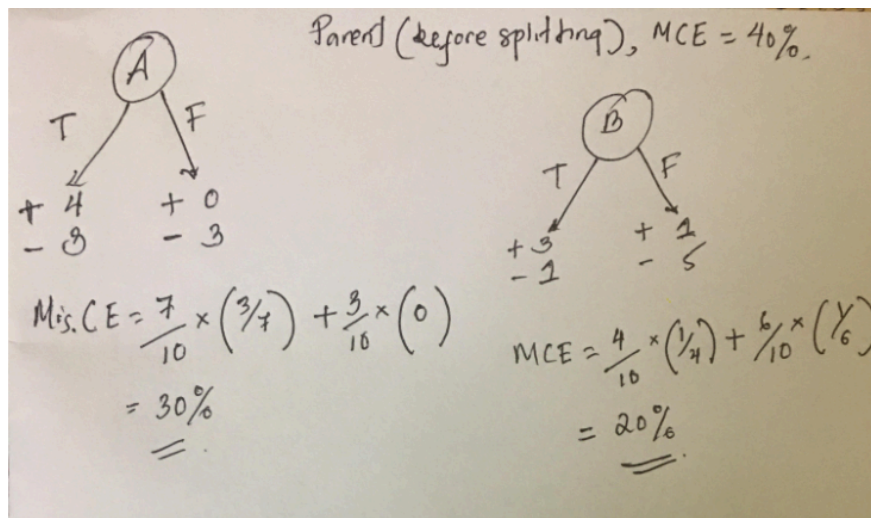 Parent (before splitting), MCE = 40%.
A
T F
+ 4 + 0
- 3 - 3
Mis.CE = 7/10 × (3/7) + 3/10 × (0)
= 30%
B
T F
+ 3 + 1
- 1 - 5
MCE = 4/10 × (1/4) + 6/10 × (1/6)
= 20%